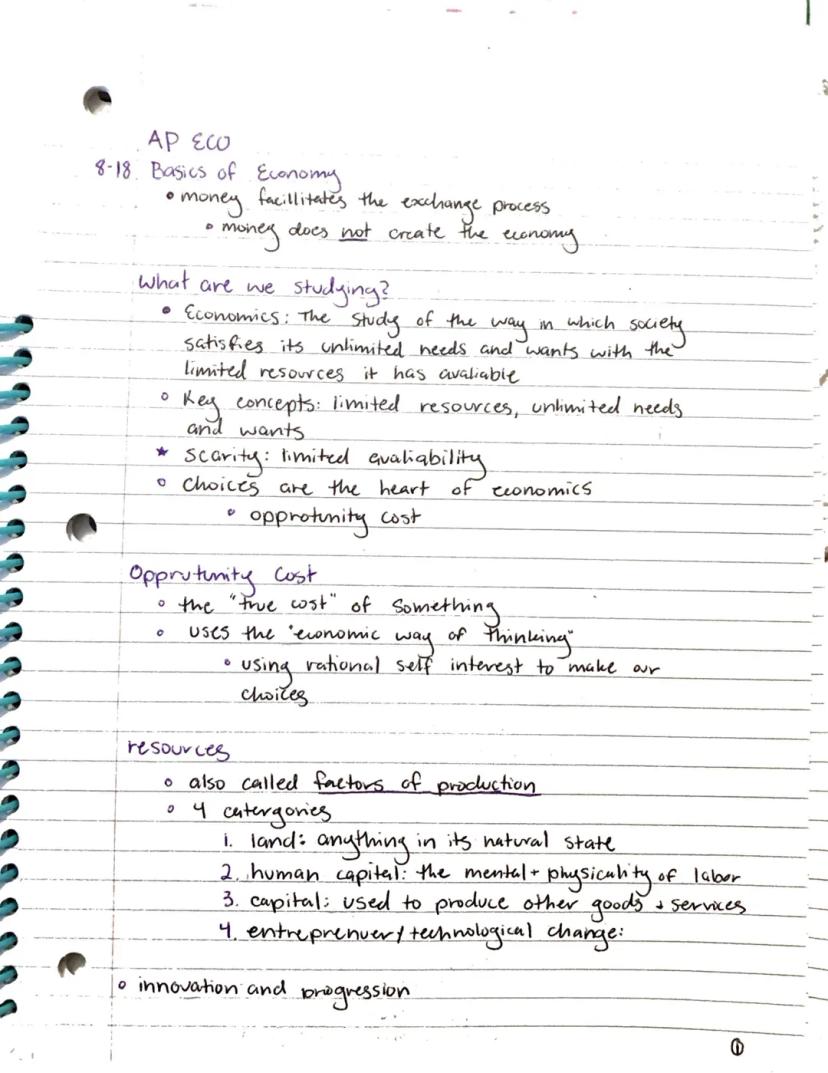 AP ECO
8-18. Basics of Economy
• money facillitates the exchange process
• money does not create the economy
What are we studying?
• Economics: The study of the way in which society
satisfies its unlimited needs and wants with the
limited resources it has avaliable
• Key concepts: limited resources, unlimited needs
and wants
★ Scarity: limited avaliability
• Choices are the heart of economics
• opprotunity cost
Opprutunity Cost
• the "true cost" of something
• uses the "economic way of thinking"
• using rational self interest to make our
choices
resources
• also called factors of production
• 4 catergories
1. land: anything in its natural state
2. human capital: the mental + physicality of labor
3. capital: used to produce other goods + services
4. entreprenuer / technological change:
• innovation and progression
1